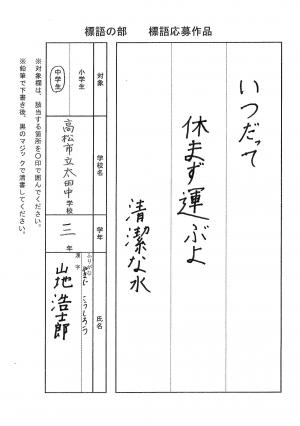 標語の部　標語応募作品
いつだって
休まず運ぶよ
清潔な水
対象
小学生
中学生
学校名
高松市立太田中学校
学年
三年
氏名
ふりがな
漢字
やまじ こうしろう
山地 浩士郎
※対象欄は、該当する箇所を〇印で囲んでください。
※鉛筆で下書き後、黒のマジックで清書してください。